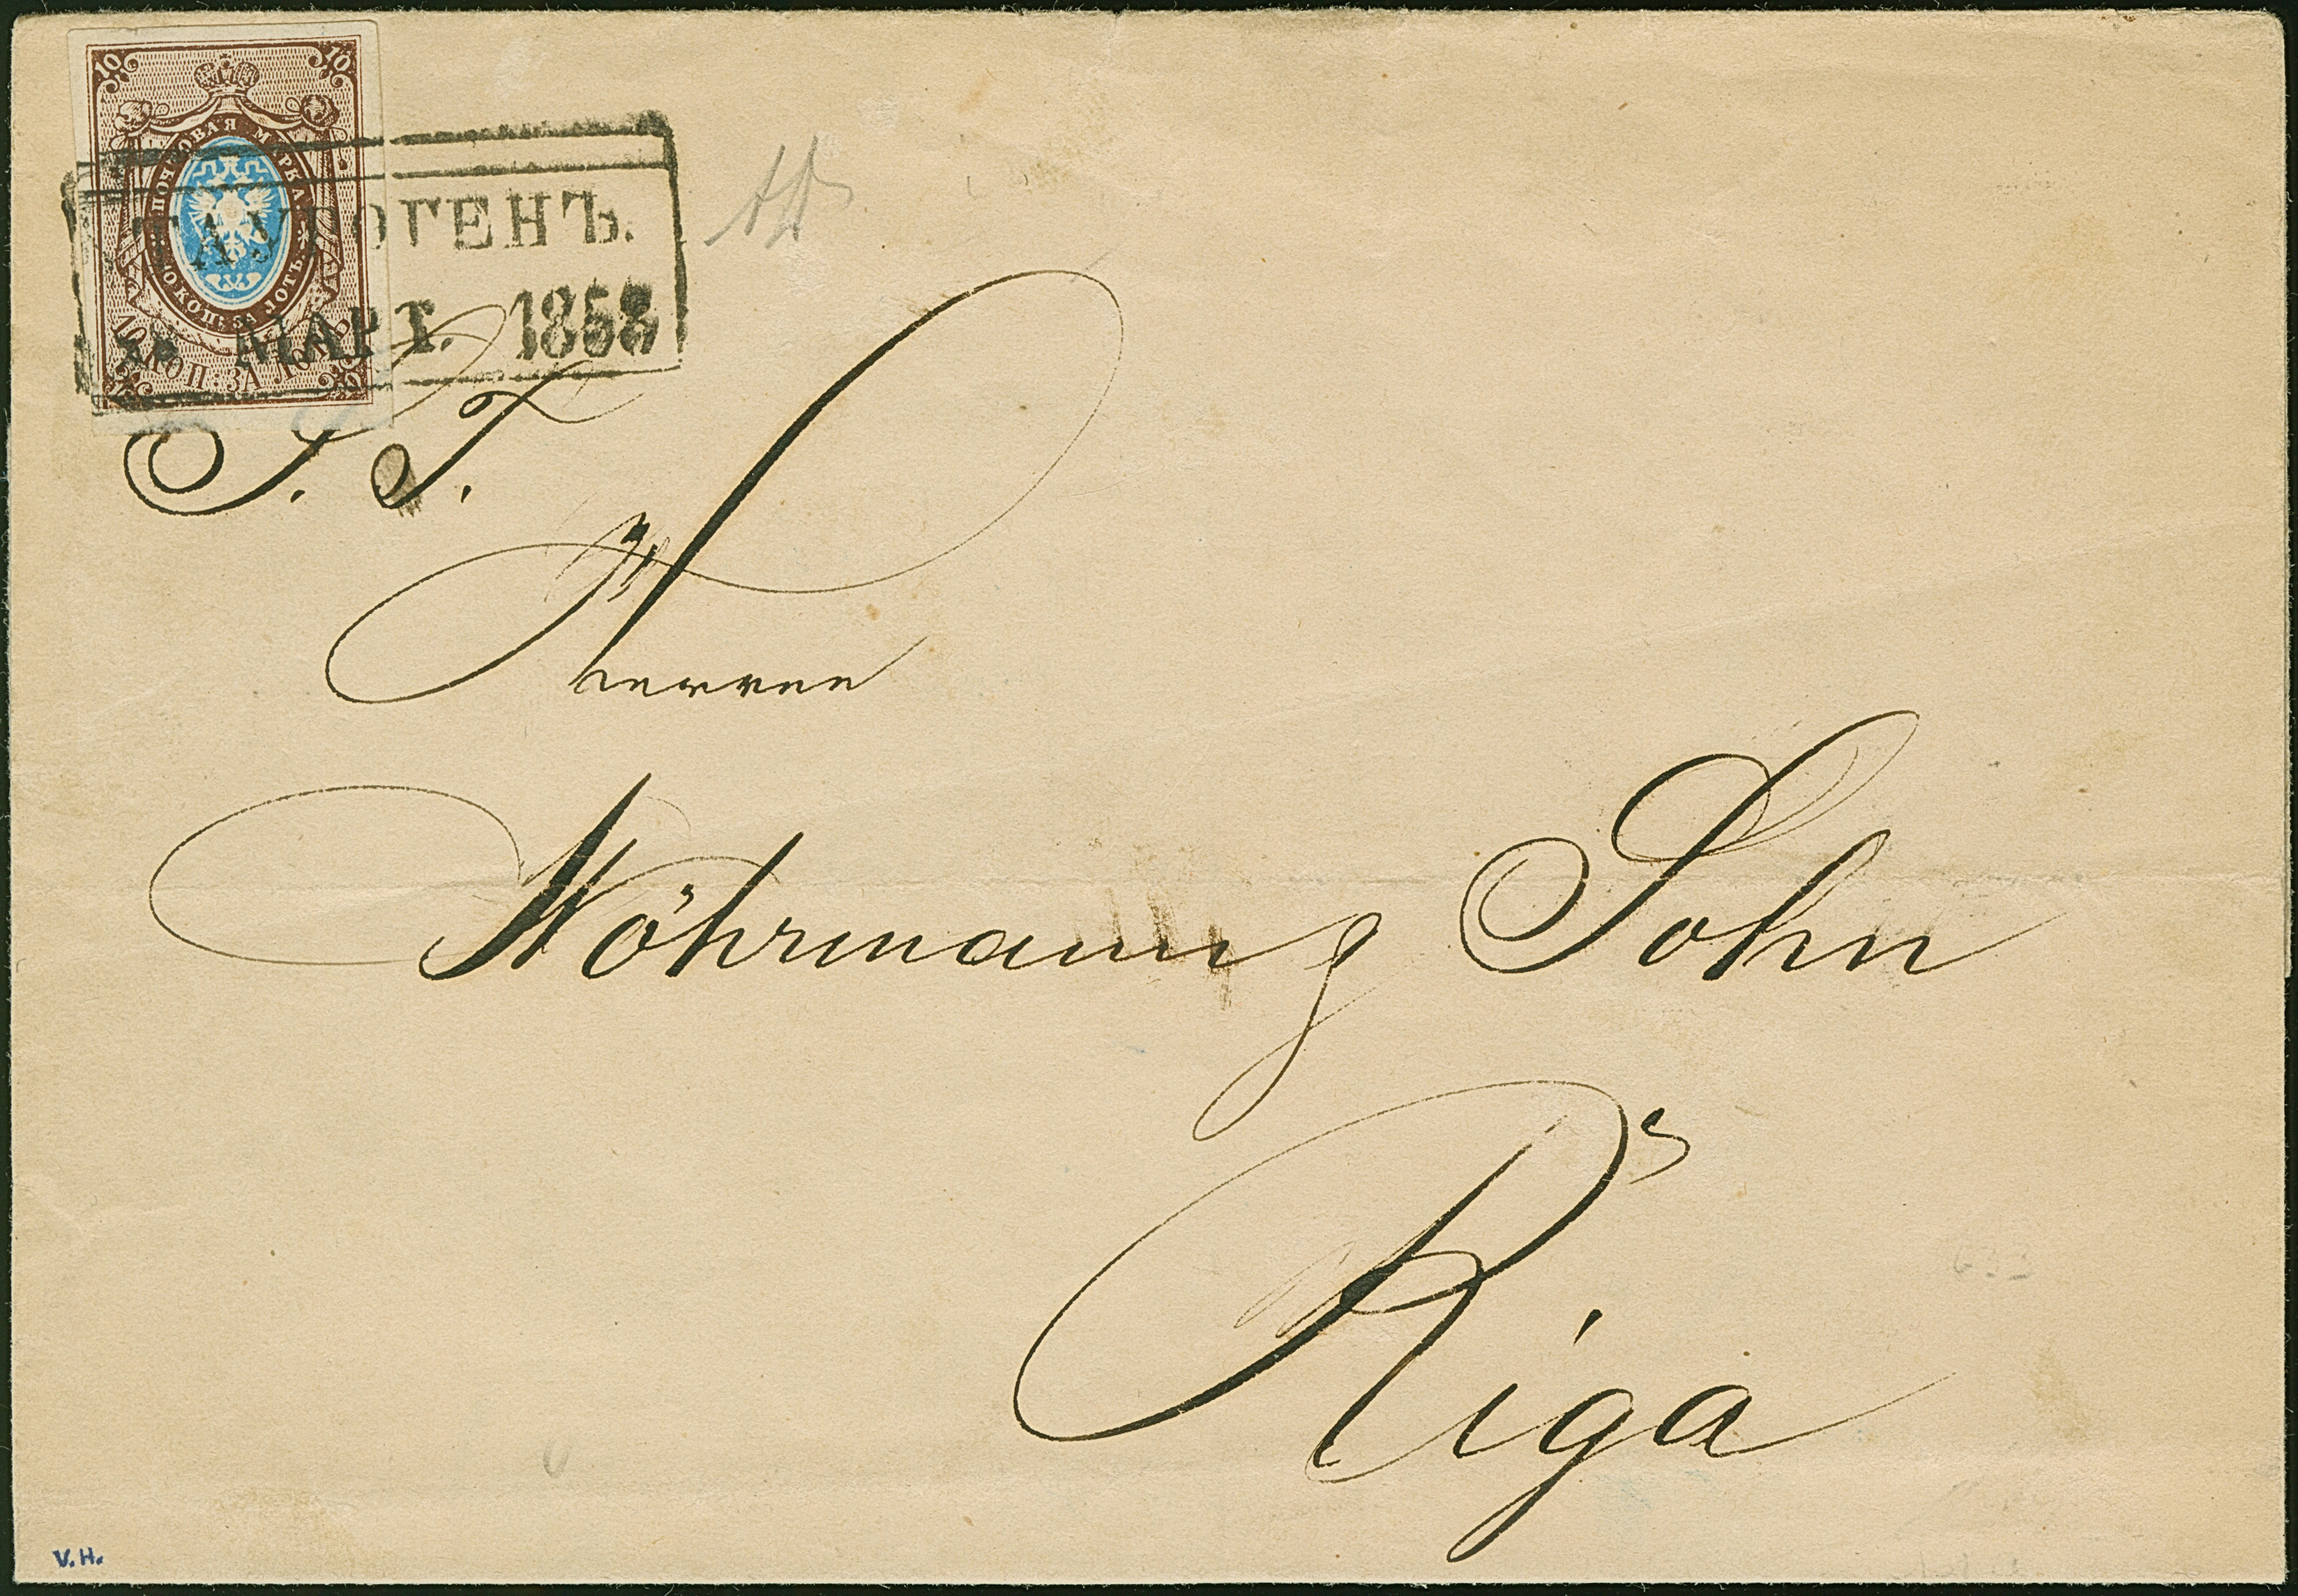 10 10
ПОЧТОВАЯ МАРКА
10 КОП: ЗА ЛОТЪ
10 КОП: ЗА ЛОТЪ
ТАУРОГЕНЪ.
МАРТ. 1858
Herren
Wöhrmann & Sohn
Riga
V.H.